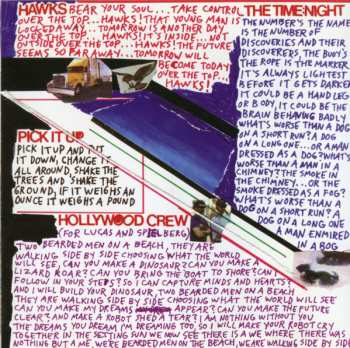 HAWKS BEAR YOUR SOUL... TAKE CONTROL
OVER THE TOP... HAWKS! THAT YOUNG MAN IS
LOCKED AWAY... TOMORROW IS ANOTHER DAY
OVER THE TOP... HAWKS! IT'S INSIDE... NOT
OUTSIDE OVER THE TOP... HAWKS! THE FUTURE
SEEMS SO FAR AWAY... TOMORROW WILL
BECOME TODAY
OVER THE TOP...
HAWKS!
THE TIME:NIGHT
THE NUMBER'S THE NAME
IS THE NUMBER OF
DISCOVERIES AND THEIR
DISCOVERERS THE BUOY'S
THE ROPE IS THE MARKER
IT'S ALWAYS LIGHTEST
BEFORE IT GETS DARKER
IT COULD BE A HAND LEG
OR BODY, IT COULD BE THE
BRAIN BEHAVING BADLY
WHAT'S WORSE THAN A DOG
ON A SHORT RUN? A DOG
ON A LONG ONE... OR A MAN
DRESSED AS A DOG? WHAT'S
WORSE THAN A MAN IN A
CHIMNEY? THE SMOKE IN
THE CHIMNEY... OR THE
SMOKE DRESSED AS A FOG?
WHAT'S WORSE THAN A
DOG ON A SHORT RUN? A
DOG ON A LONG ONE
A MAN ENMIRED
IN A BOG
PICK IT UP
PICK IT UP AND PUT
IT DOWN, CHANGE IT
ALL AROUND, SHAKE THE
TREES AND SHAKE THE
GROUND, IF IT WEIGHS AN
OUNCE IT WEIGHS A POUND
HOLLYWOOD CREW
(FOR LUCAS AND SPIELBERG)
TWO BEARDED MEN ON A BEACH, THEY ARE
WALKING SIDE BY SIDE CHOOSING WHAT THE WORLD
WILL SEE, CAN YOU MAKE A DINOSAUR? CAN YOU MAKE A
LIZARD ROAR? CAN YOU BRING THE BOAT TO SHORE? CAN I
FOLLOW IN YOUR STEPS? SO I CAN CAPTURE MINDS AND HEARTS
AND I WILL BUILD YOUR DINOSAUR, TWO BEARDED MEN ON A BEACH
THEY ARE WALKING SIDE BY SIDE CHOOSING WHAT THE WORLD WILL SEE
CAN YOU MAKE MY DREAMS APPEAR? CAN YOU MAKE THE FUTURE
CLEAR? AND MAKE A ROBOT SHED A TEAR? I AM NOTHING WITHOUT YOU
THE DREAMS YOU DREAM I'M DREAMING TOO, SO I WILL MAKE YOUR ROBOT CRY
TOGETHER IN THE SETTING SUN WE NOW SEE THERE IS A WE WHERE THERE WAS
NOTHING BUT A ME, WE'RE BEARDED MEN ON THE BEACH, WE ARE WALKING SIDE BY SIDE